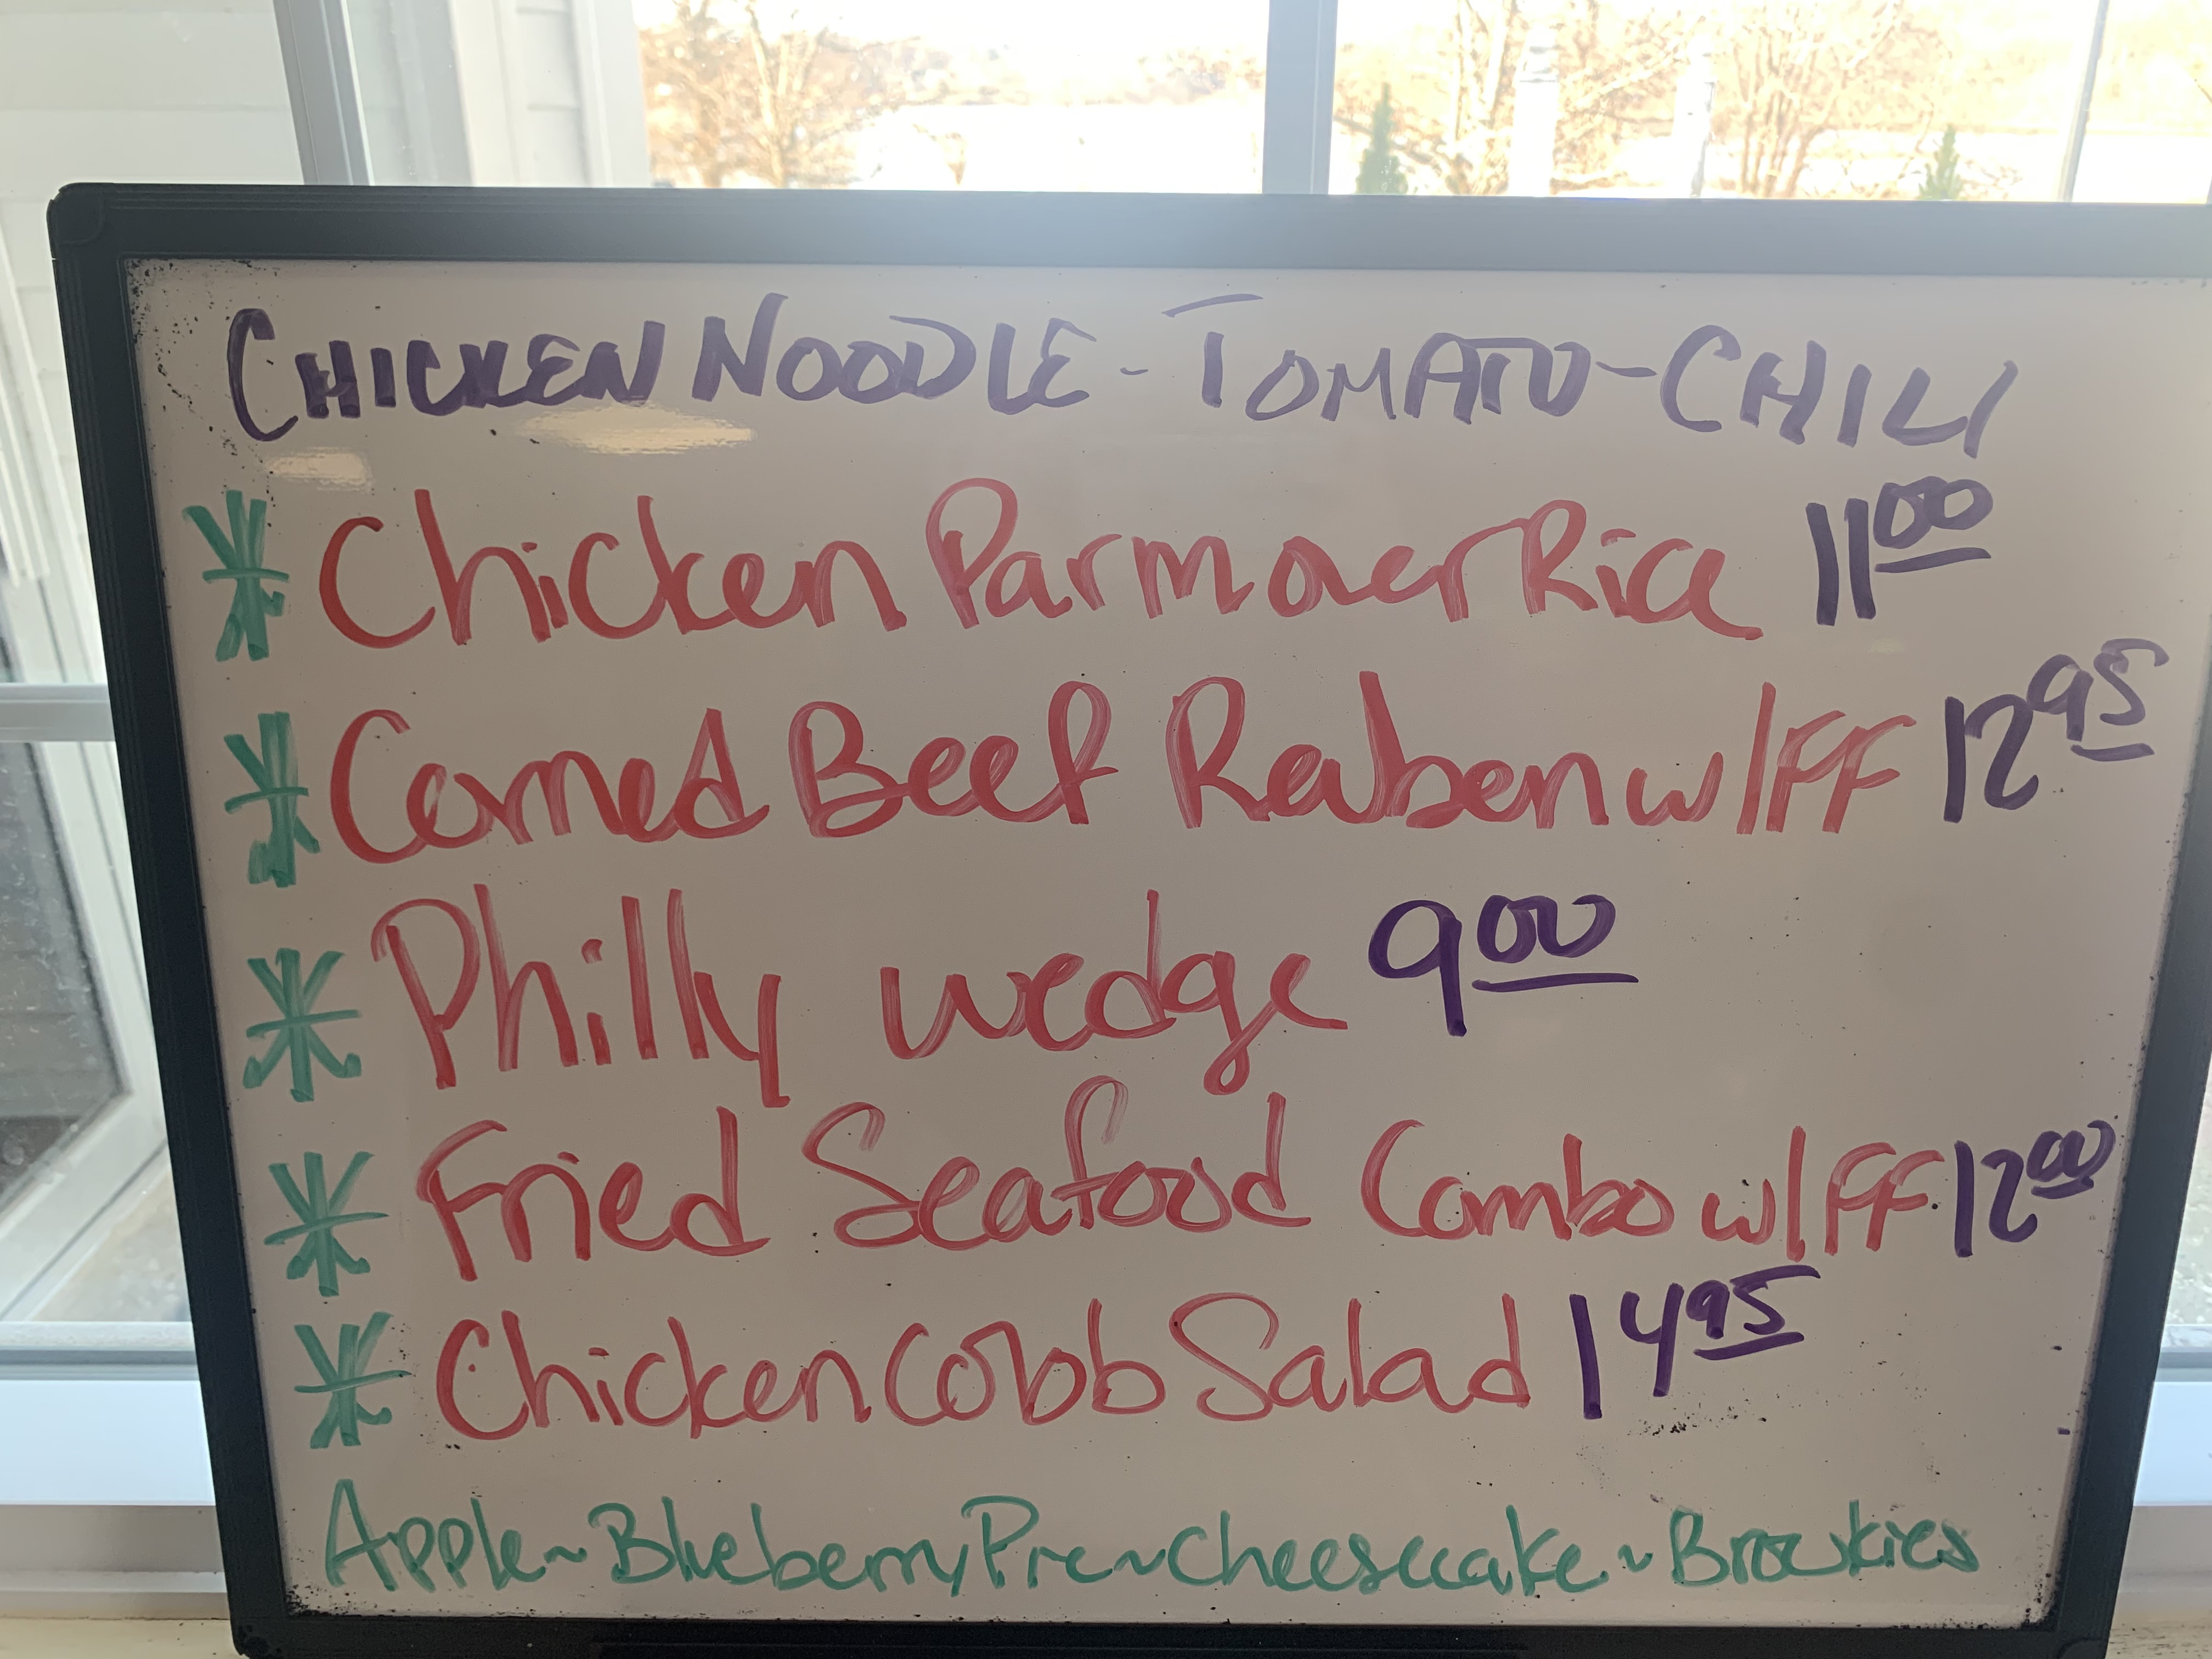 CHICKEN NOODLE - TOMATO - CHILI
* Chicken Parm over Rice 11 00
* Corned Beef Reuben w/FF 12 95
* Philly wedge 9 00
* Fried Seafood Combo w/FF 12 00
* Chicken Cobb Salad 14 95
Apple ~ Blueberry Pie ~ Cheesecake ~ Brookies